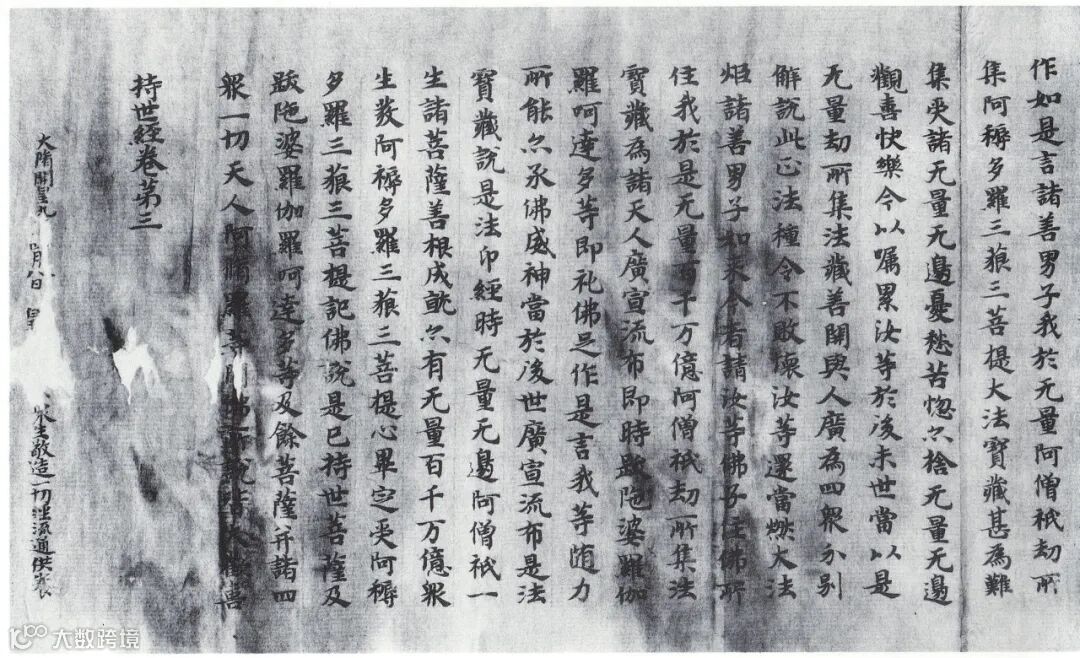 作如是言諸善男子我於无量阿僧祇劫所
集阿耨多羅三狼三菩提大法寶藏甚為難
集受諸无量无邊憂愁苦惚尒捨无量无邊
觀喜快樂今以嘱累汝等於後末世當以是
无量劫所集法藏善開與人廣為四衆分别
解說此正法種令不敗壞汝等還當燃大法
炬諸善男子如来今者請汝等佛子住佛所
住我於是无量百千万億阿僧祇劫所集法
寶藏為諸天人廣宣流布即時跋陁婆羅伽
羅呵達多等即礼佛足作是言我等随力
所能尒承佛威神當於後世廣宣流布是法
寶藏說是法印經時无量无邊阿僧祇一
生諸菩薩善根成就尒有无量百千万億衆
生發阿耨多羅三狼三菩提心畢定受阿耨
多羅三狼三菩提記佛說是已持世菩薩及
跋陁婆羅伽羅呵達多等及餘菩薩并諸四
衆一切天人阿脩羅等聞佛所說皆大歡喜
持世經卷第三
大隋開皇九 月八日 皇 敬造一切經流通供養
大数跨境